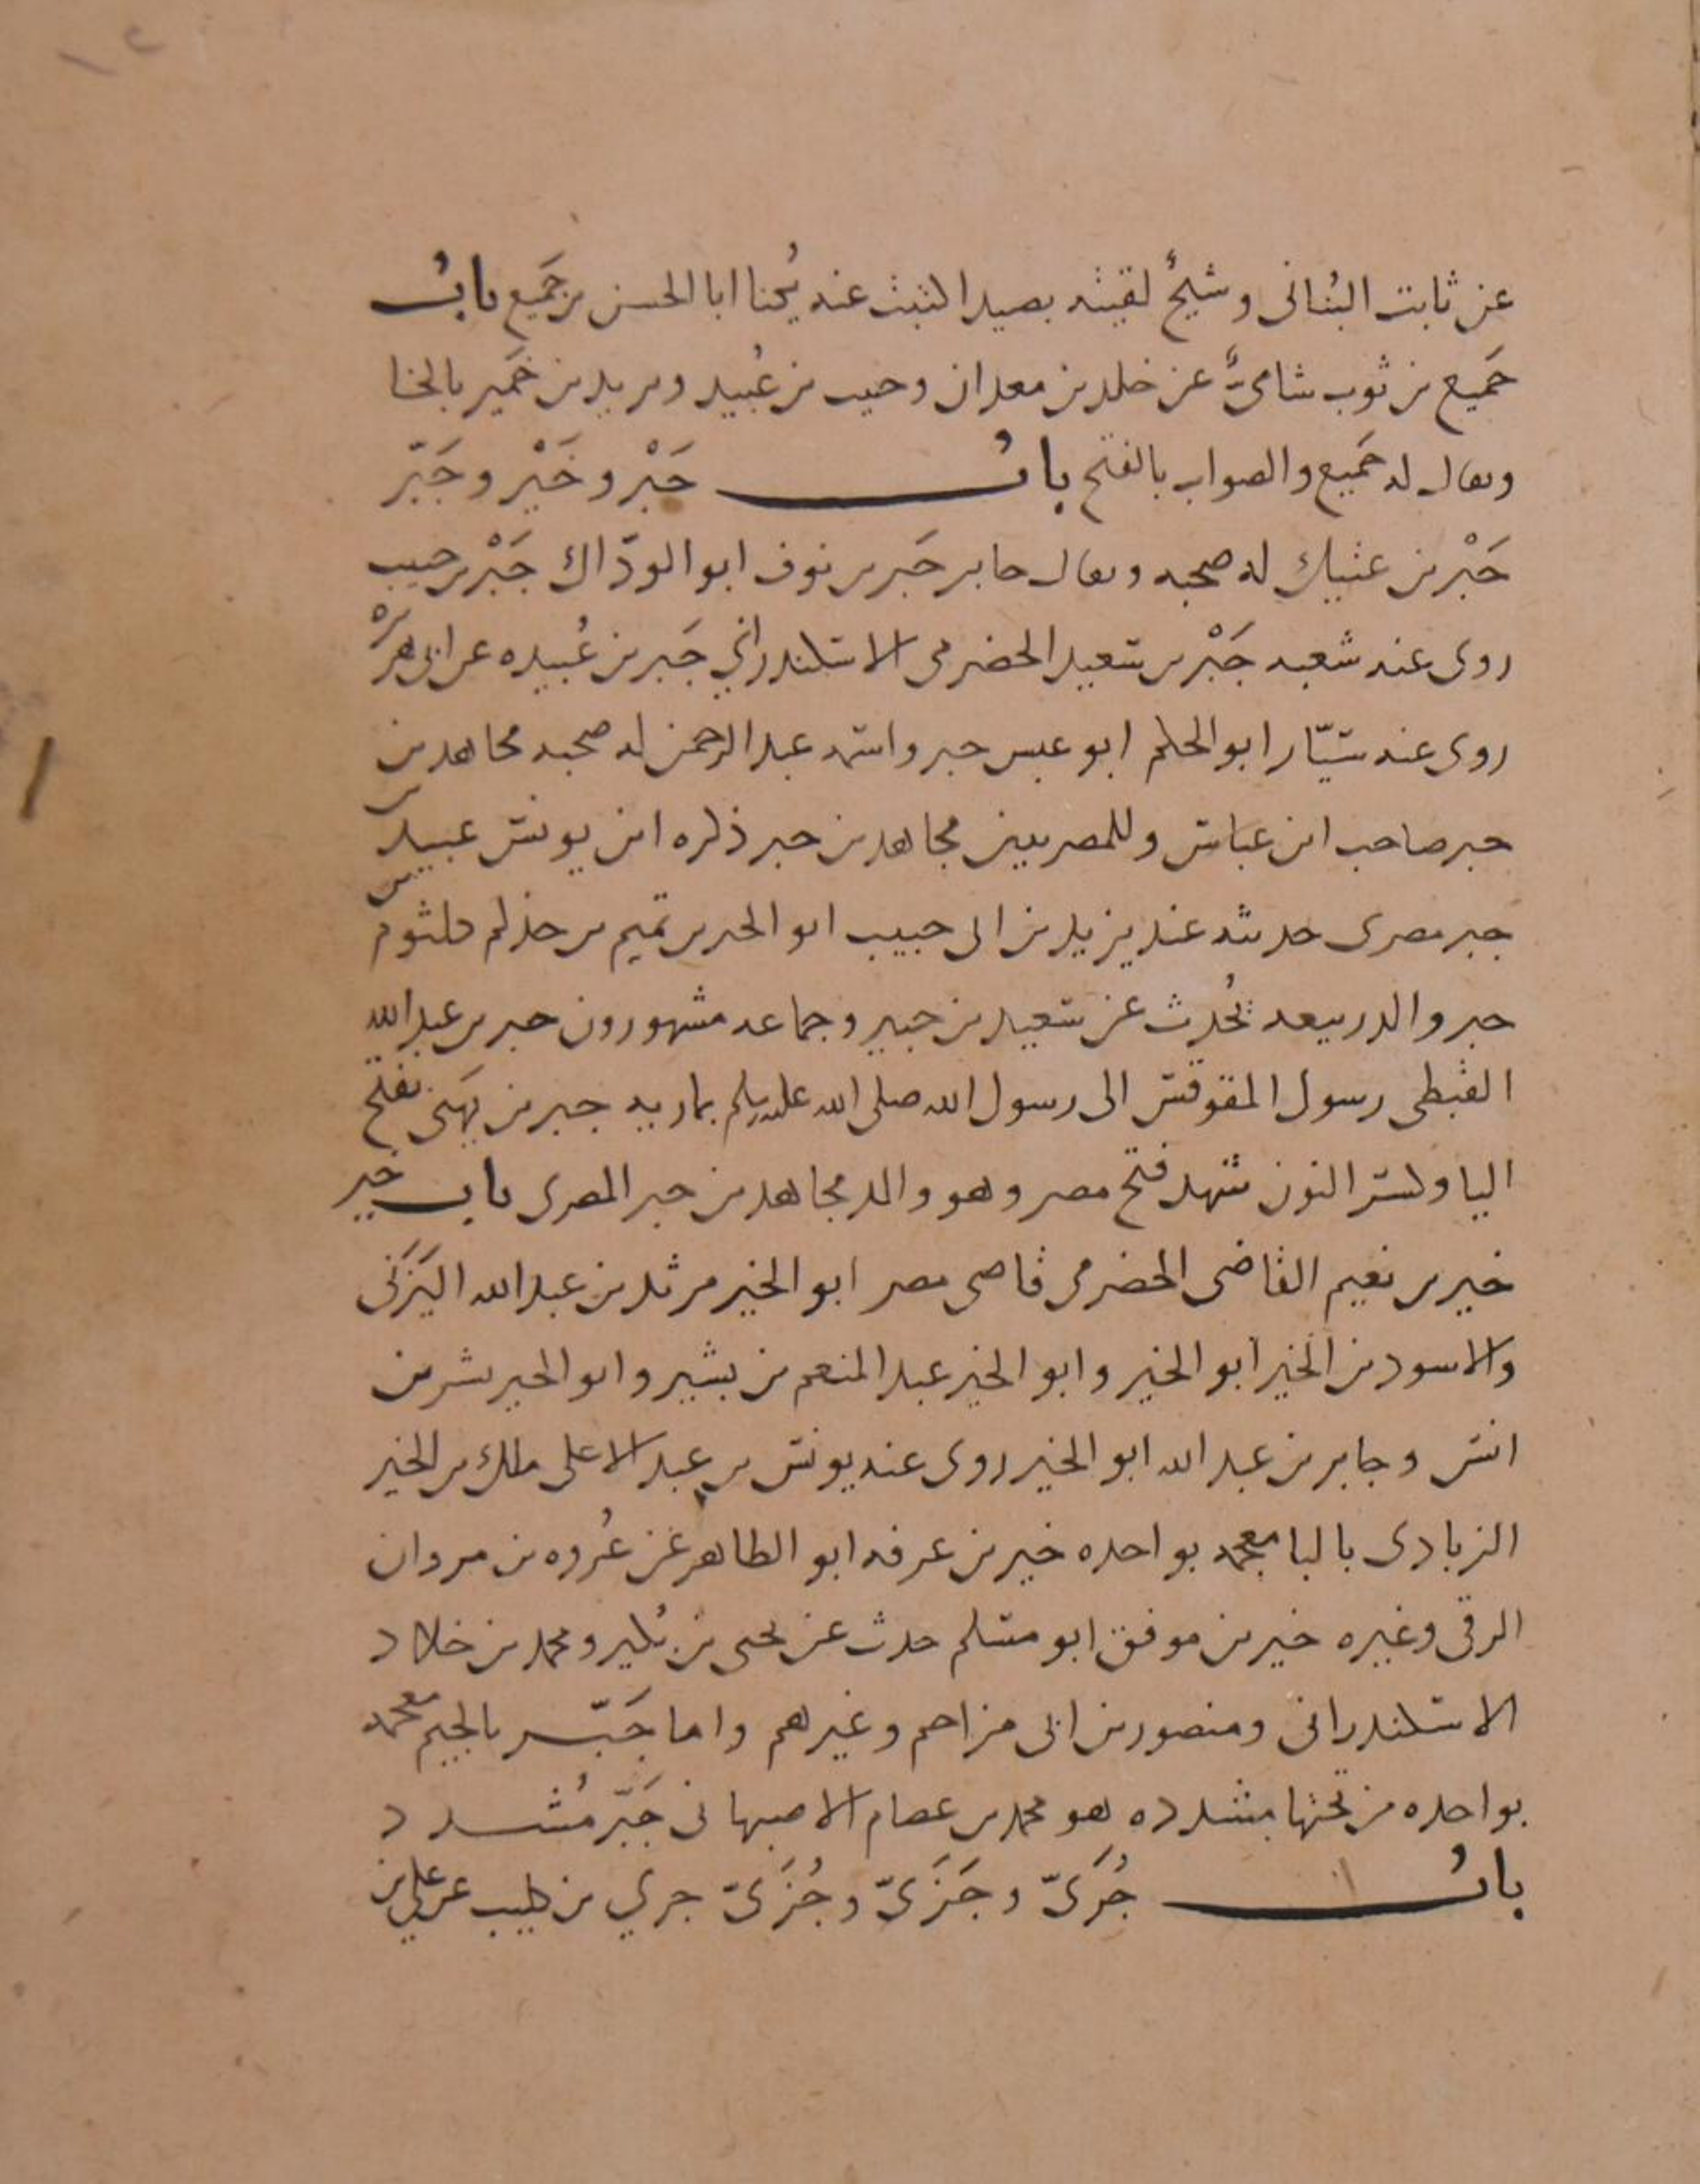 عن ثابت البُناني وشيخٌ لقيته بصيدا كتبت عنه يُكنا ابا الحسن بن جَميع بابُ
جَميع بن ثوب شاميٌّ عن خلد بن معدان وحبيب بن عُبيد ويزيد بن خُمَير بالخا
ويقال له جُميع والصواب بالفتح بابُ جَبْر وخَيْر وجَبّر
جَبْر بن عتيك له صحبه ويقال جابر جَبر بن نوف ابو الودّاك جَبْر بن حبيب
روى عنه شعبه جَبْر بن سعيد الحضرمي الاسكندراني جَبر بن عُبيده عن ابي هريره
روى عنه سيّار ابو الحكم ابو عبس جبر واسمه عبد الرحمن له صحبه مجاهد بن
جبر صاحب ابن عباس وللمصريين مجاهد بن جبر ذكره ابن يونس عبيد بن
جبر مصرى حديثه عند يزيد بن ابى حبيب ابو الجبر بن تميم بن حذلم كلثوم بن
جبر والد ربيعه يُحدث عن سعيد بن جبير وجماعه مشهورون جبر بن عبد الله
القبطى رسول المقوقس الى رسول الله صلى الله عليه وسلم بماريه جبر بن يَهَنى بفتح
اليا وكسر النون شهد فتح مصر وهو والد مجاهد بن جبر المصرى باب خير
خير بن نعيم القاضى الحضرمى قاضى مصر ابو الخير مرثد بن عبد الله اليَزَنى
والاسود بن الخير ابو الخير وابو الخير عبد المنعم بن بشير وابو الخير بشر بن
انس وجابر بن عبد الله ابو الخير روى عنه يونس بن عبد الاعلى ملك بن الخير
الزبادى بالبا معجمه بواحده خير بن عرفه ابو الطاهر عن عُروه بن مروان
الرقى وغيره خير بن موفق ابو مسلم حدث عن يحيى بن بُكير ومحمد بن خلاد
الاسكندرانى ومنصور بن ابى مزاحم وغيرهم واما جَبّر بالجيم معجمه
بواحده من تحتها مشدده هو محمد بن عصام الاصبهانى جَبّر مُشدد
بابُ جُرَىّ وجَزَىّ وجُزَىّ جري بن كليب عن على بن